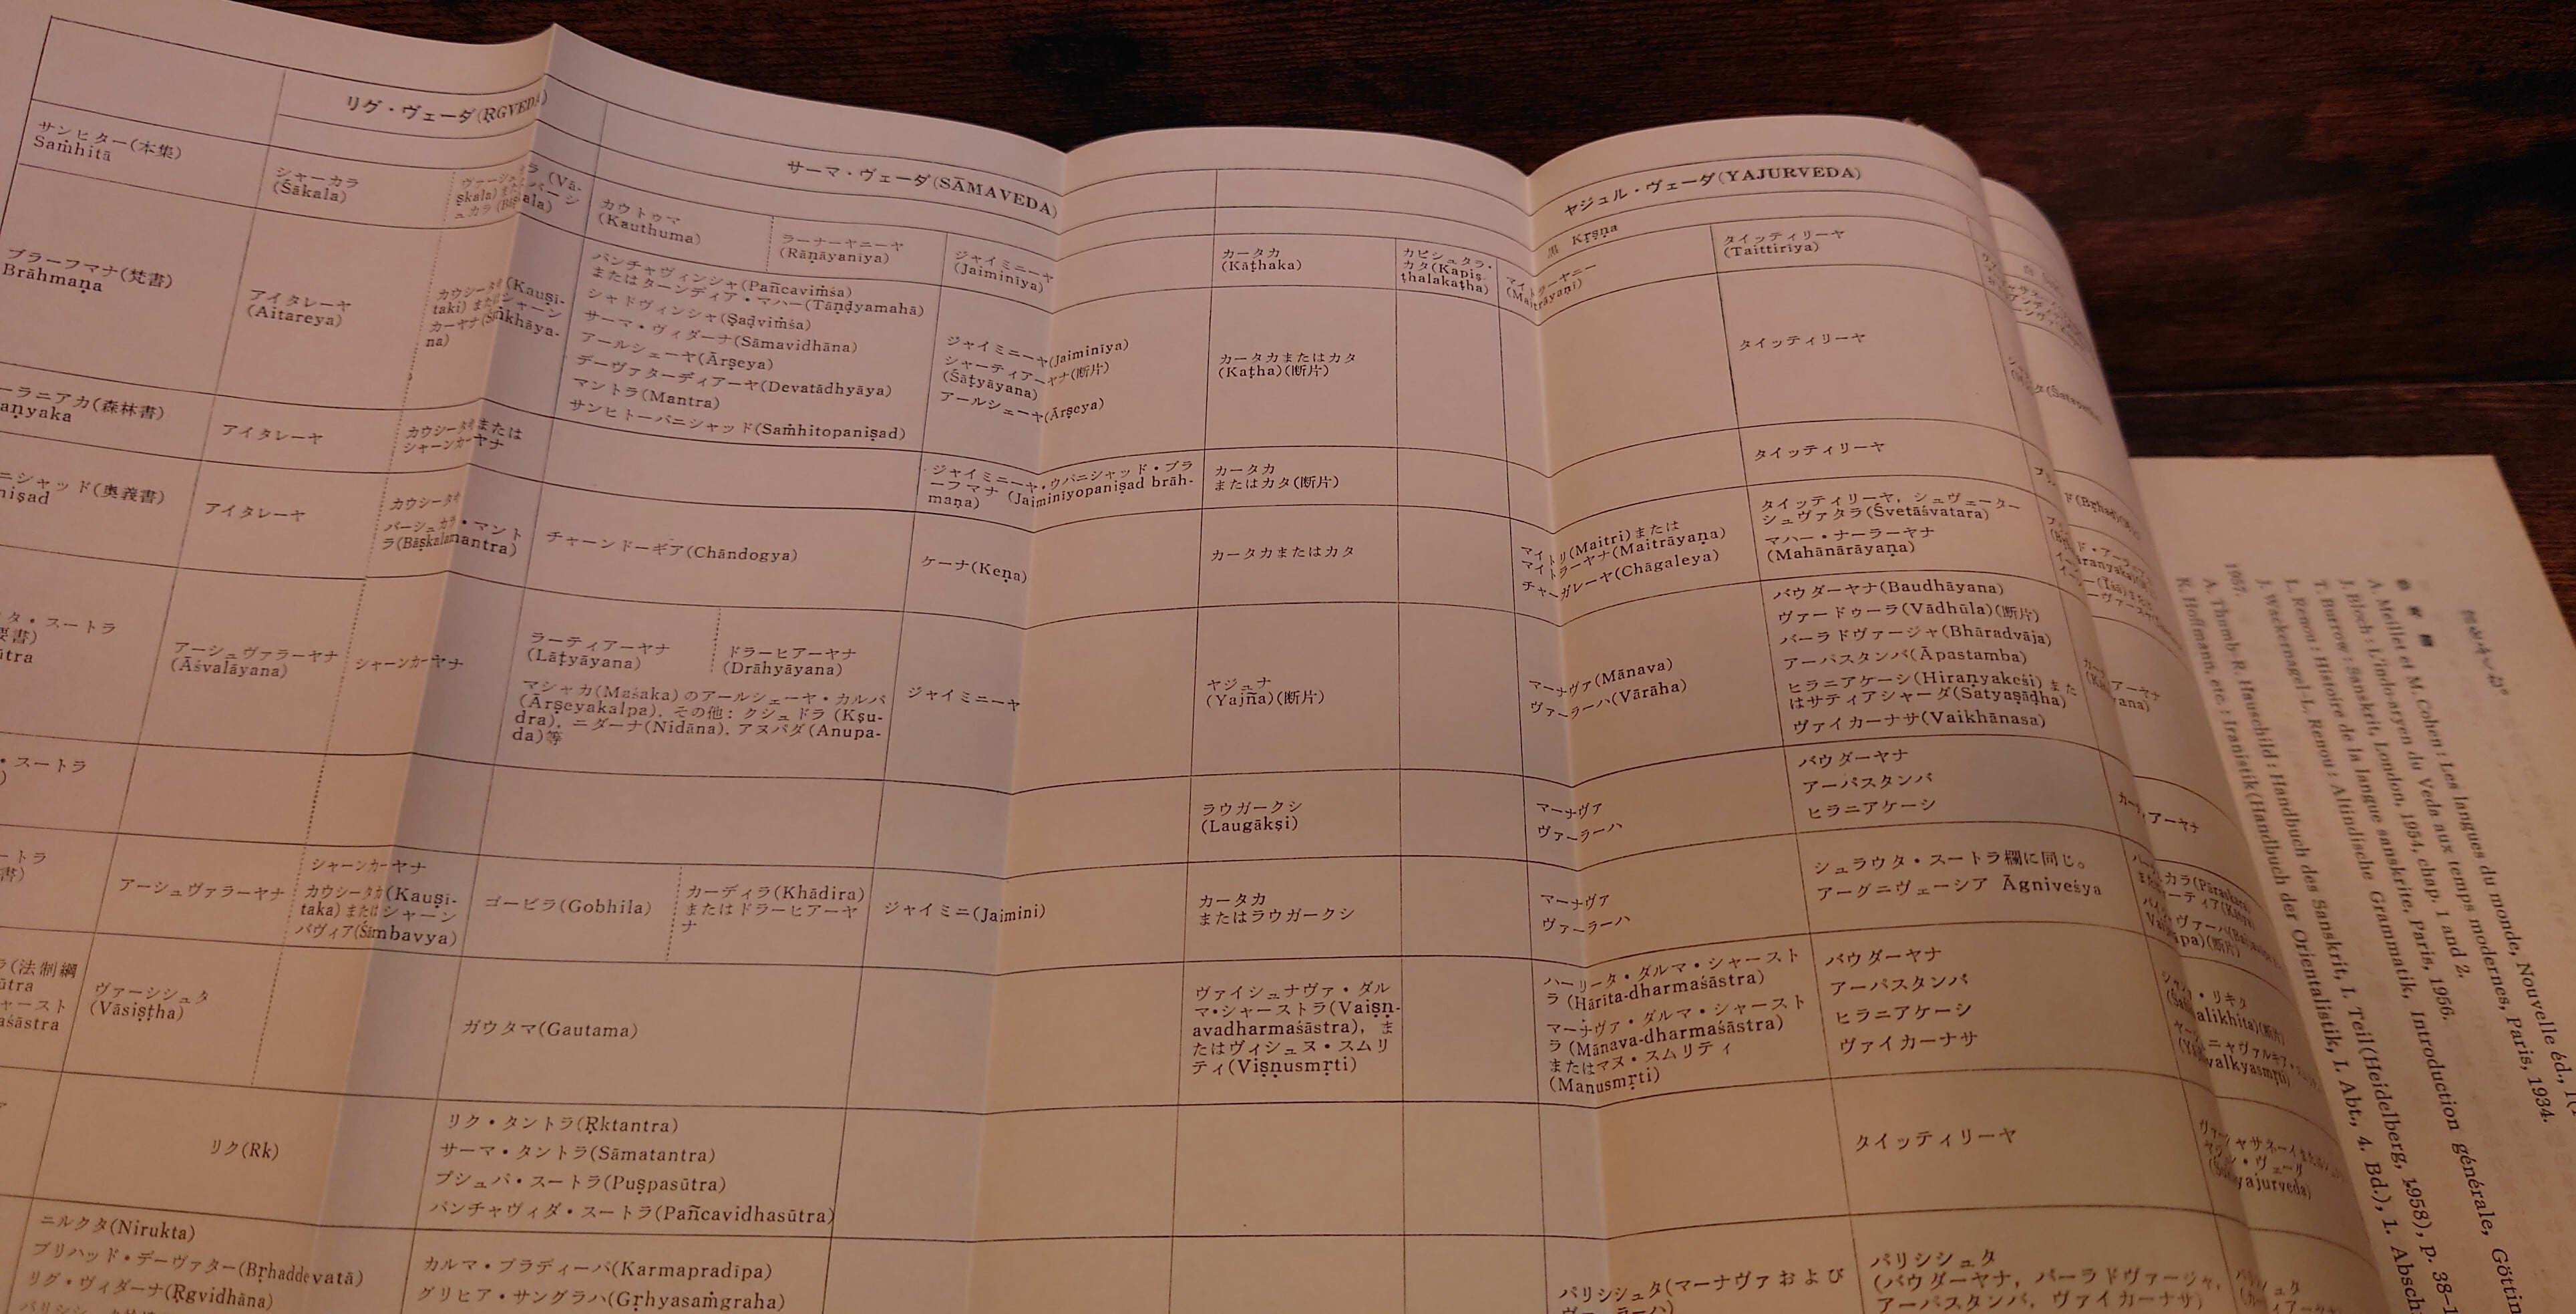 リグ・ヴェーダ(ṚGVEDA)
サーマ・ヴェーダ(SĀMAVEDA)
ヤジュル・ヴェーダ(YAJURVEDA)
黒 Kṛṣṇa
サンヒター(本集)
Saṁhitā
シャーカラ
(Śākala)
カウトゥマ
(Kauthuma)
ラーナーヤニーヤ
(Rāṇāyaniya)
ジャイミニーヤ
(Jaiminīya)
カータカ
(Kāṭhaka)
カピシュタラ・
カタ(Kapiṣ-
ṭhalakaṭha)
タイッティリーヤ
(Taittirīya)
ブラーフマナ(梵書)
Brāhmaṇa
アイタレーヤ
(Aitareya)
カウシータキ(Kauṣī-
taki)またはシャーン
カーヤナ(Śāṅkhāya-
na)
パンチャヴィンシャ(Pañcaviṁśa)
またはターンディア・マハー(Tāṇḍyamahā)
シャドヴィンシャ(Ṣaḍviṁśa)
サーマ・ヴィダーナ(Sāmavidhāna)
アールシェーヤ(Ārṣeya)
デーヴァターディアーヤ(Devatādhyāya)
マントラ(Mantra)
サンヒトーパニシャッド(Saṁhitopaniṣad)
ジャイミニーヤ(Jaiminīya)
シャーティアーヤナ(断片)
(Śāṭyāyana)
アールシェーヤ(Ārṣeya)
カータカまたはカタ
(Kaṭha)(断片)
タイッティリーヤ
ーラニアカ(森林書)
aṇyaka
アイタレーヤ
カウシータキまたは
シャーンカーヤナ
ジャイミニーヤ・ウパニシャッド・ブラ
ーフマナ (Jaiminīyopaniṣad brāh-
maṇa)
カータカ
またはカタ(断片)
タイッティリーヤ
ニシャッド(奥義書)
niṣad
アイタレーヤ
カウシータキ
バーシュカラ・マント
ラ(Bāṣkalamantra)
チャーンドーギア(Chāndogya)
ケーナ(Keṇa)
カータカまたはカタ
マイトリ(Maitri)または
マイトラーヤナ(Maitrāyaṇa)
チャーガレーヤ(Chāgaleya)
タイッティリーヤ, シュヴェーター
シュヴァタラ(Śvetāśvatara)
マハー・ナーラーヤナ
(Mahānārāyaṇa)
タ・スートラ
要書)
ūtra
アーシュヴァラーヤナ
(Āśvalāyana)
シャーンカーヤナ
ラーティアーヤナ
(Lāṭyāyana)
ドラーヒアーヤナ
(Drāhyāyana)
マシャカ(Maśaka)のアールシェーヤ・カルパ
(Ārṣeyakalpa), その他: クシュドラ (Kṣu-
dra), ニダーナ(Nidāna), アヌパダ(Anupa-
da)等
ジャイミニーヤ
ヤジュナ
(Yajña)(断片)
マーナヴァ(Mānava)
ヴァーラーハ(Vārāha)
バウダーヤナ(Baudhāyana)
ヴァードゥーラ(Vādhūla)(断片)
バーラドヴァージャ(Bhāradvāja)
アーパスタンバ(Āpastamba)
ヒラニアケーシ(Hiraṇyakeśi)また
はサティアシャーダ(Satyaṣāḍha)
ヴァイカーナサ(Vaikhānasa)
・スートラ
)
ラウガークシ
(Laugākṣi)
マーナヴァ
ヴァーラーハ
バウダーヤナ
アーパスタンバ
ヒラニアケーシ
ートラ
書)
アーシュヴァラーヤナ
シャーンカーヤナ
カウシータカ(Kauṣī-
taka)またはシャーン
バヴィア(Śāmbavya)
ゴービラ(Gobhila)
カーディラ(Khādira)
またはドラーヒアーヤ
ナ
ジャイミニ(Jaimini)
カータカ
またはラウガークシ
マーナヴァ
ヴァーラーハ
シュラウタ・スートラ欄に同じ。
アーグニヴェーシア Āgniveśya
ラ(法制綱
ūtra
ャースト
aśāstra
ヴァーシシュタ
(Vāsiṣṭha)
ガウタマ(Gautama)
ヴァイシュナヴァ・ダル
マ・シャーストラ(Vaiṣṇ-
avadharmaśāstra), ま
たはヴィシュヌ・スムリ
ティ(Viṣṇusmṛti)
ハーリータ・ダルマ・シャースト
ラ (Hārita-dharmaśāstra)
マーナヴァ・ダルマ・シャースト
ラ (Mānava-dharmaśāstra)
またはマヌ・スムリティ
(Manusmṛti)
バウダーヤナ
アーパスタンバ
ヒラニアケーシ
ヴァイカーナサ
リク(Rk)
リク・タントラ(Ṛktantra)
サーマ・タントラ(Sāmatantra)
プシュパ・スートラ(Puṣpasūtra)
パンチャヴィダ・スートラ(Pañcavidhasūtra)
タイッティリーヤ
ニルクタ(Nirukta)
ブリハッド・デーヴァター(Bṛhaddevatā)
リグ・ヴィダーナ(Ṛgvidhāna)
カルマ・プラディーパ(Karmapradīpa)
グリヒア・サングラハ(Gṛhyasaṁgraha)
パリシシュタ(マーナヴァおよび
パリシシュタ
(バウダーヤナ, バーラドヴァージャ,
アーパスタンバ, ヴァイカーナサ)
A. Meillet et M. Cohen : Les langues du monde, Nouvelle éd.,
J. Bloch : L'indo-aryen du Veda aux temps modernes, Paris, 1934.
T. Burrow : Sanskrit, London, 1954, chap. 1 and 2.
L. Renou : Histoire de la langue sanskrite, Paris, 1956.
J. Wackernagel-L. Renou : Altindische Grammatik, Introduction générale, Göttin
1957.
A. Thumb-R. Hauschild : Handbuch des Sanskrit, I. Teil (Heidelberg, 1958), p. 38-1
K. Hoffmann, etc. : Iranistik (Handbuch der Orientalistik, I. Abt., 4. Bd.), 1. Absch